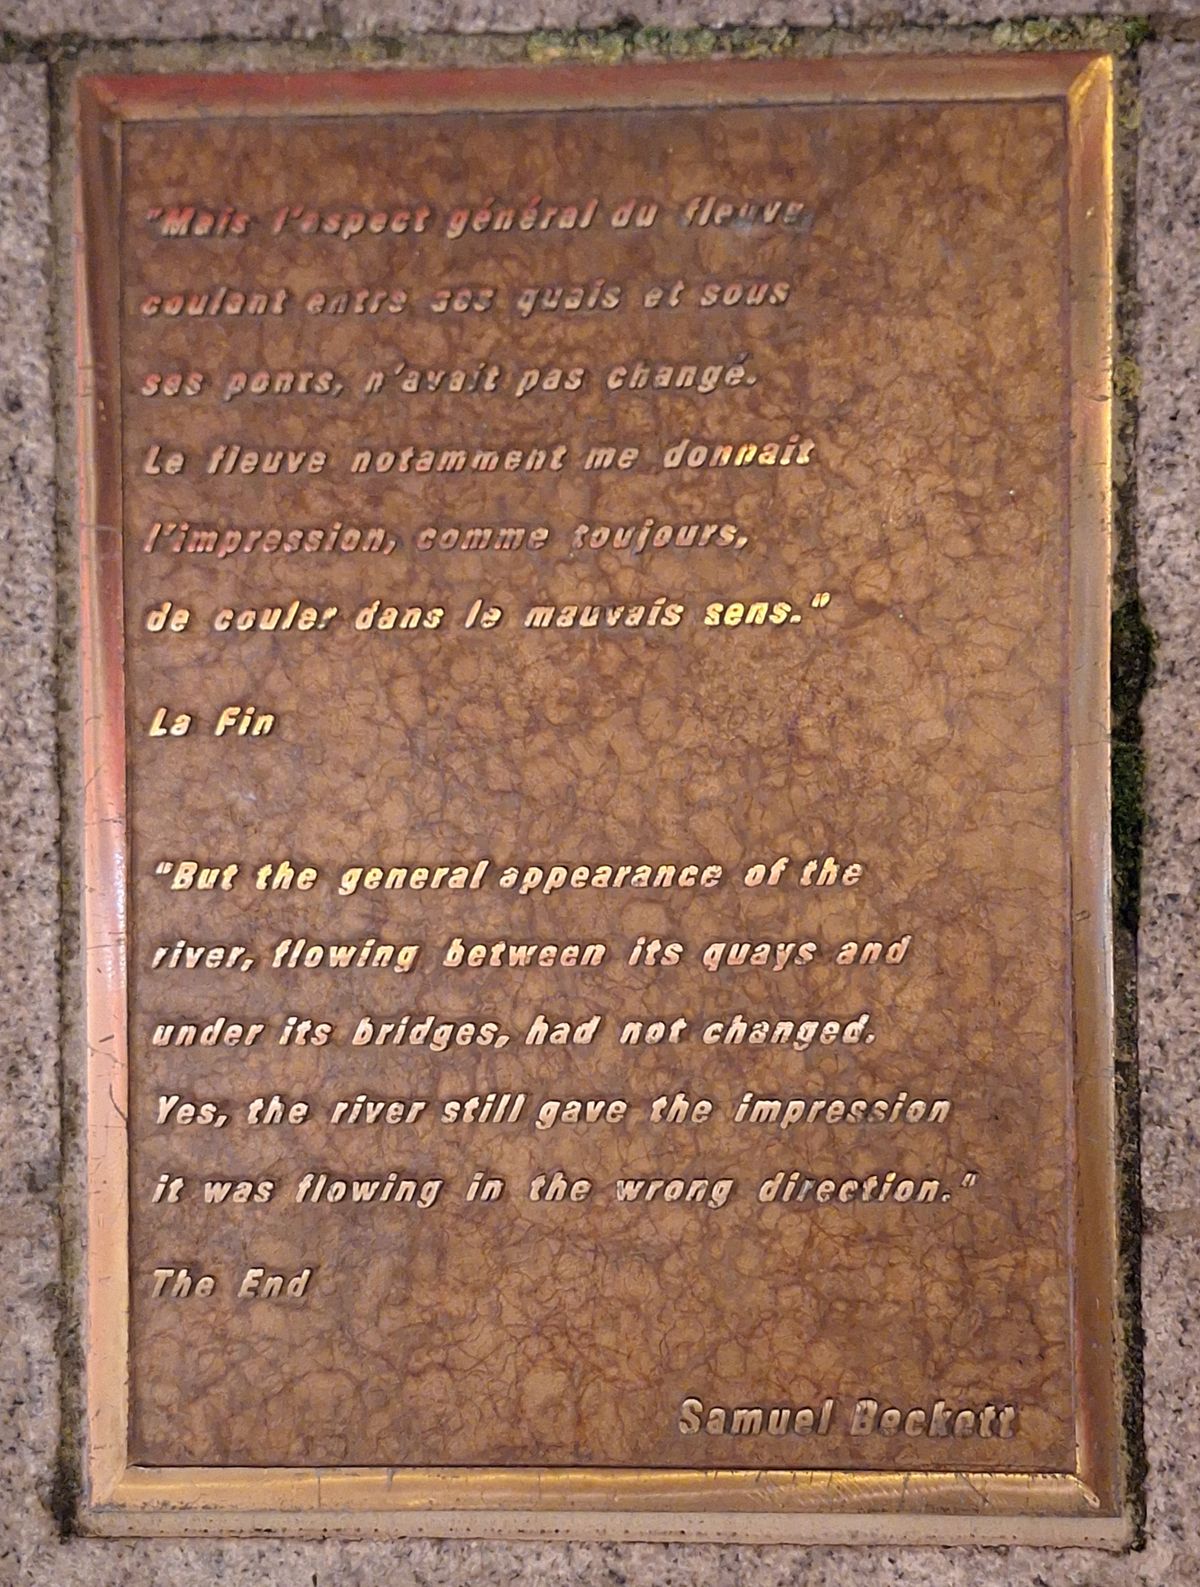 "Mais l'aspect général du fleuve,
coulant entre ses quais et sous
ses ponts, n'avait pas changé.
Le fleuve notamment me donnait
l'impression, comme toujours,
de couler dans le mauvais sens."
La Fin
"But the general appearance of the
river, flowing between its quays and
under its bridges, had not changed.
Yes, the river still gave the impression
it was flowing in the wrong direction."
The End
Samuel Beckett